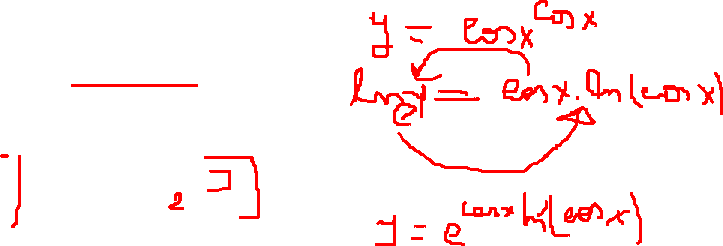 y = cosx^cosx
ln y = cosx.ln(cosx)
2
y = e^cosx ln(cosx)